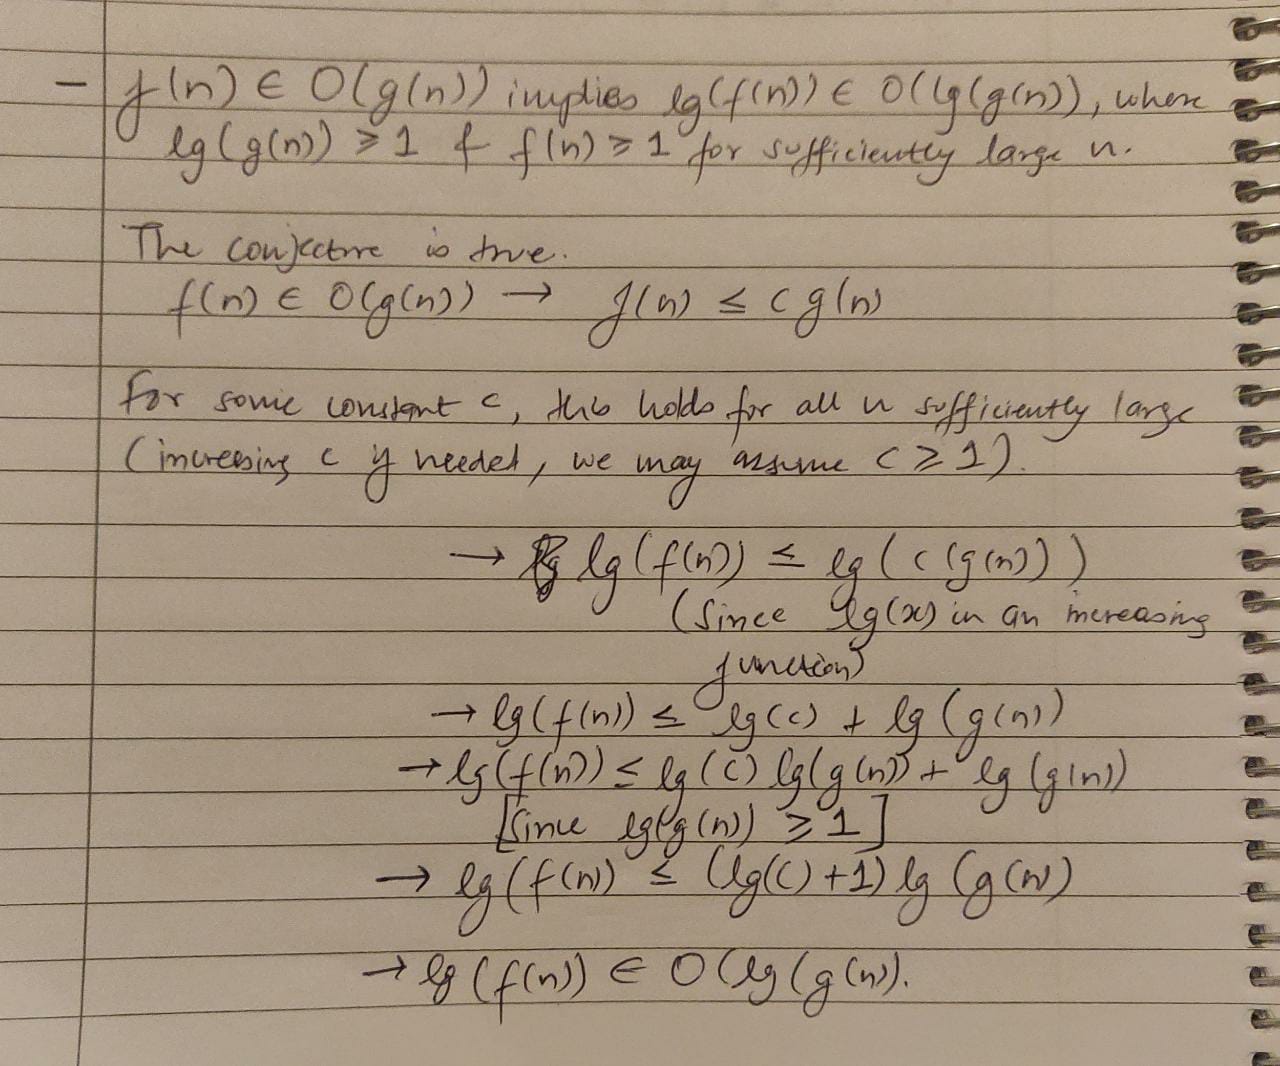 - f(n) ∈ O(g(n)) implies lg(f(n)) ∈ O(lg(g(n)), where
lg(g(n)) ≥ 1 & f(n) ≥ 1 for sufficiently large n.
The conjecture is true.
f(n) ∈ O(g(n)) → f(n) ≤ c g(n)
For some constant c, this holds for all n sufficiently large
(increasing c if needed, we may assume c ≥ 1).
→ lg(f(n)) ≤ lg(c(g(n)))
(Since lg(x) in an increasing
function)
→ lg(f(n)) ≤ lg(c) + lg(g(n))
→ lg(f(n)) ≤ lg(c) lg(g(n)) + lg(g(n))
[Since lg(g(n)) ≥ 1]
→ lg(f(n)) ≤ (lg(c)+1) lg(g(n)
→ lg(f(n)) ∈ O(lg(g(n).